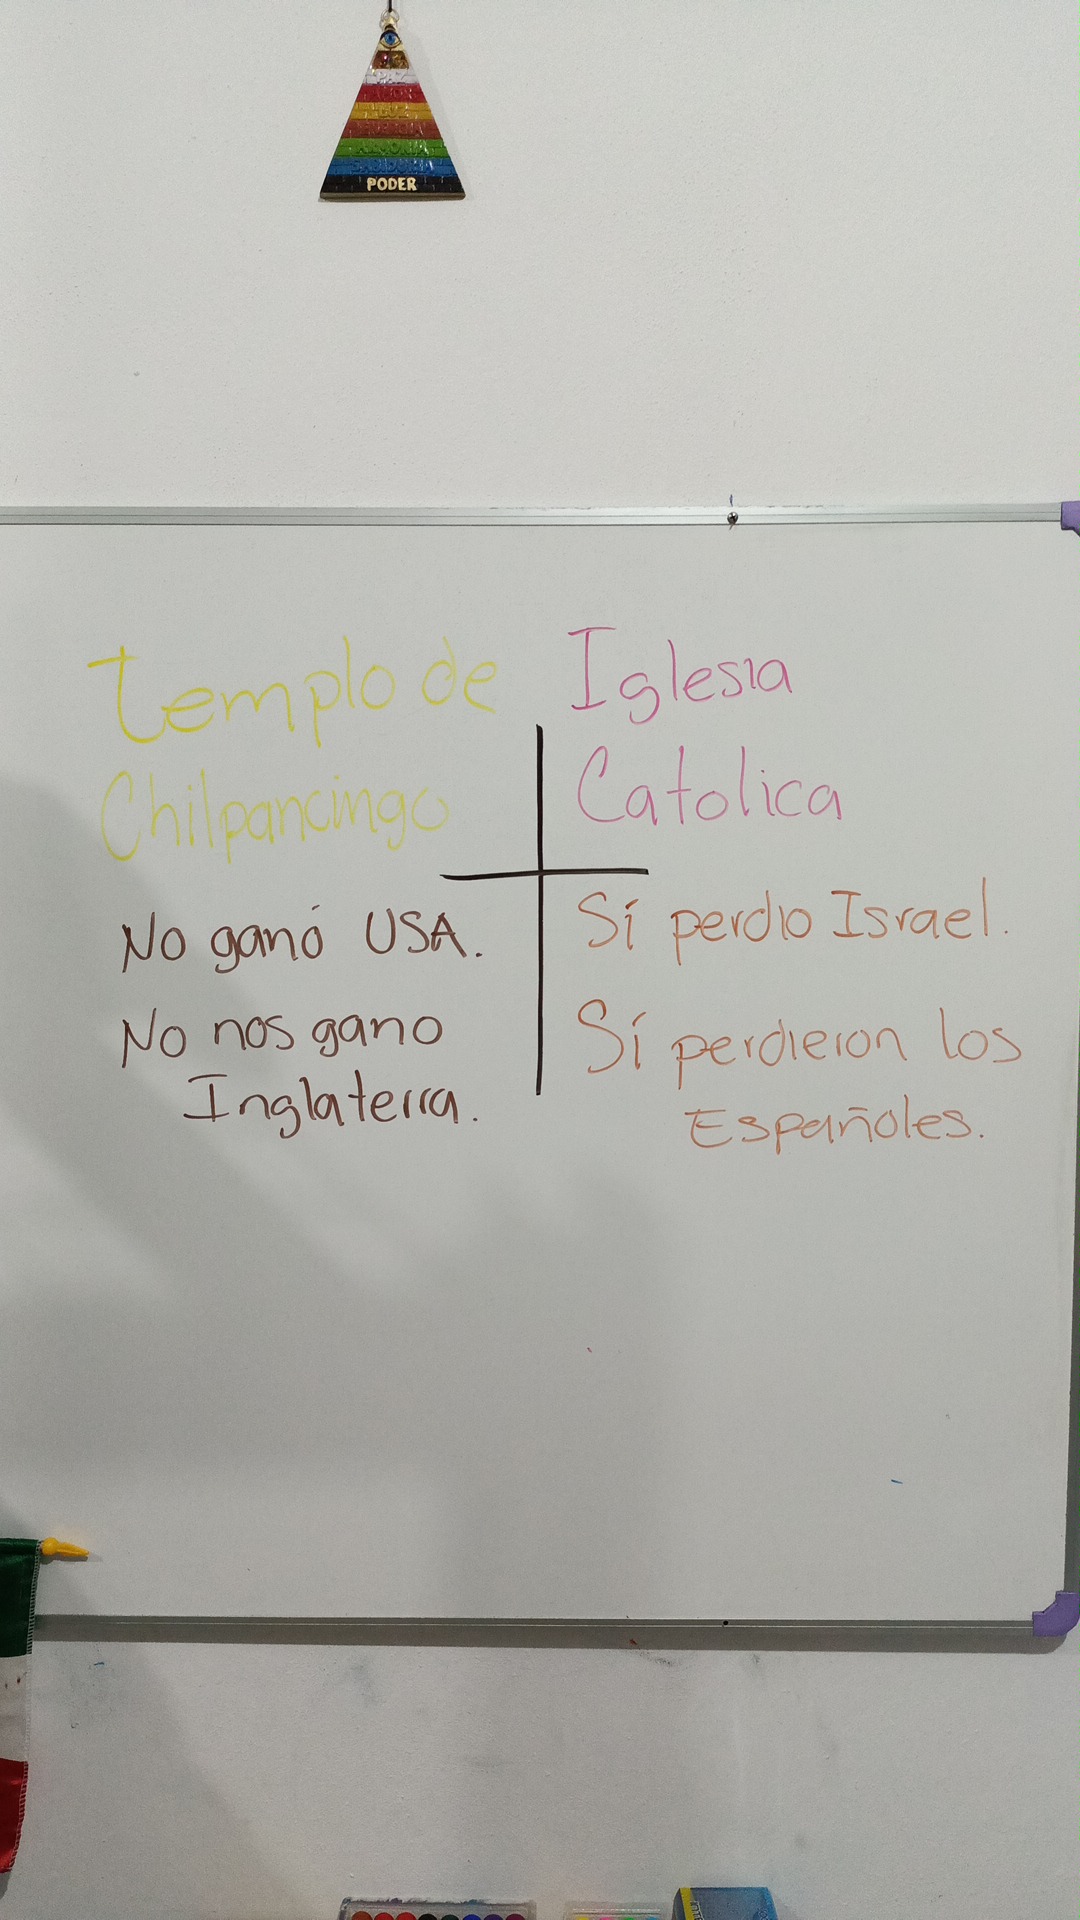 PAZ
AMOR
LUZ
ALEGRIA
SABIDURIA
PODER
templo de
Chilpancingo
No ganó USA.
No nos gano
Inglaterra.
Iglesia
Catolica
Sí perdio Israel.
Sí perdieron los
Españoles.